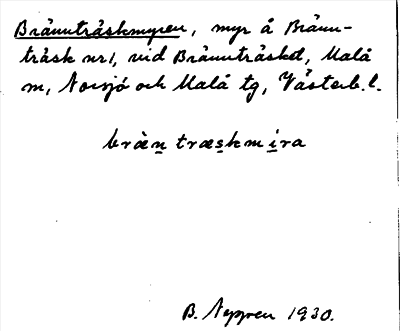 Brännträskmyren, myr å Bränn-
träsk nr 1, vid Brännträsket, Malå
m, Norsjö och Malå tg, Västerb. l.
brän træskmira
B. Nygren 1930.